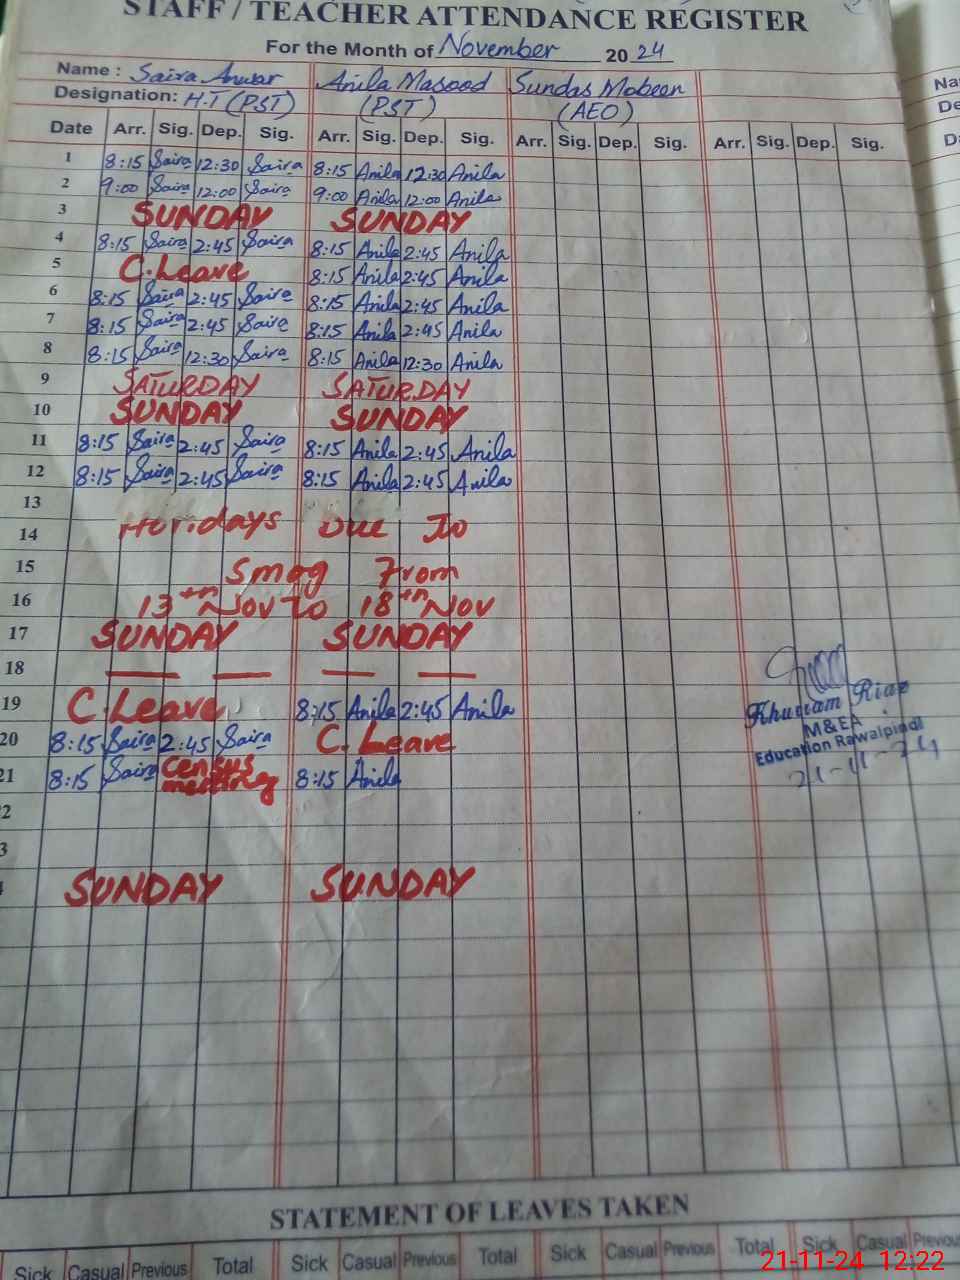 STAFF / TEACHER ATTENDANCE REGISTER
For the Month of November 2024
Name : Saira Anwar Anila Masood Sundas Mobeen
Designation: H.T (PST) (PST) (AEO)
Date Arr. Sig. Dep. Sig. Arr. Sig. Dep. Sig. Arr. Sig. Dep. Sig. Arr. Sig. Dep. Sig.
1 8:15 Saira 12:30 Saira 8:15 Anila 12:30 Anila
2 9:00 Saira 12:00 Saira 9:00 Anila 12:00 Anila
3 SUNDAY SUNDAY
4 8:15 Saira 2:45 Saira 8:15 Anila 2:45 Anila
5 C.Leave 8:15 Anila 2:45 Anila
6 8:15 Saira 2:45 Saira 8:15 Anila 2:45 Anila
7 8:15 Saira 2:45 Saira 8:15 Anila 2:45 Anila
8 8:15 Saira 12:30 Saira 8:15 Anila 12:30 Anila
9 SATURDAY SATURDAY
10 SUNDAY SUNDAY
11 8:15 Saira 2:45 Saira 8:15 Anila 2:45 Anila
12 8:15 Saira 2:45 Saira 8:15 Anila 2:45 Anila
13
14 Holidays Due To
15 Smog From
16 13th Nov To 18th Nov
17 SUNDAY SUNDAY
18 — — — —
19 C.Leave 8:15 Anila 2:45 Anila
20 8:15 Saira 2:45 Saira C. Leave
21 8:15 Saira census meeting 8:15 Anila
2
3
SUNDAY SUNDAY
Khurram Riaz
M&EA
Education Rawalpindi
21-11-24
STATEMENT OF LEAVES TAKEN
Sick Casual Previous Total Sick Casual Previous Total Sick Casual Previous Total Sick Casual Previous
21-11-24 12:22